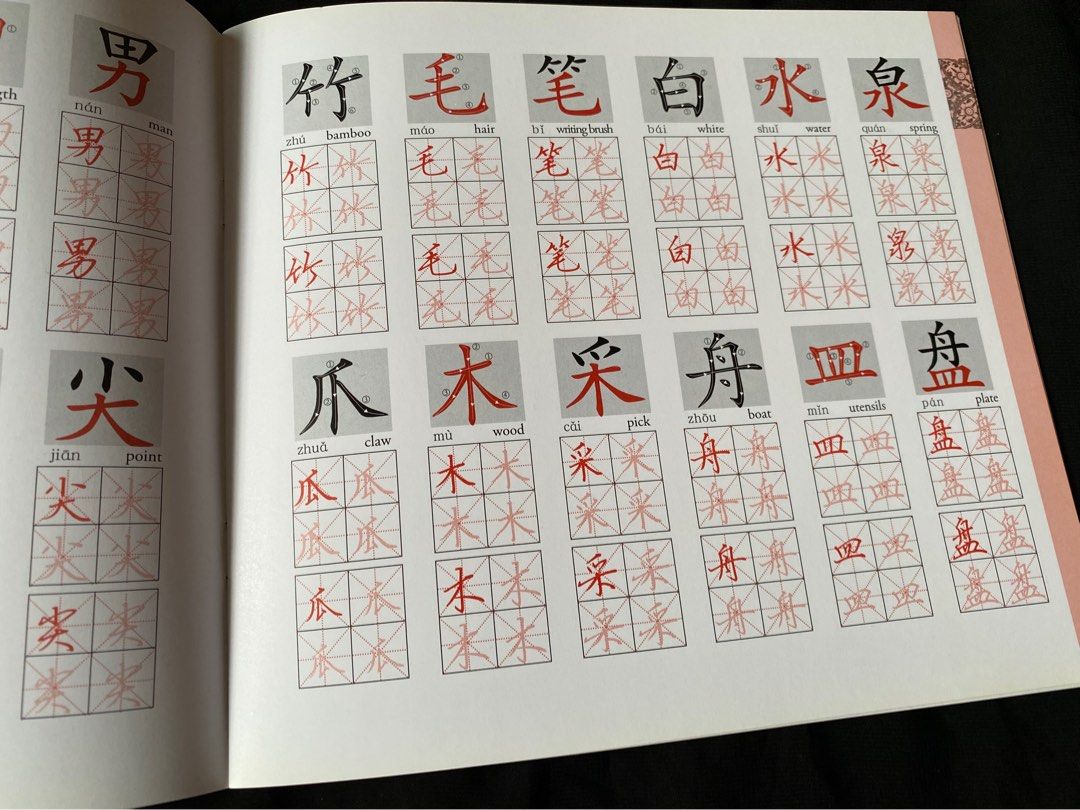 男
nán man
男 男
男 男
男 男
男 男
尖
jiān point
尖 尖
尖 尖
尖 尖
尖 尖
竹 毛 笔 白 水 泉
zhú bamboo máo hair bǐ writing brush bái white shuǐ water quán spring
竹 竹 毛 毛 笔 笔 白 白 水 水 泉 泉
竹 竹 毛 毛 笔 笔 白 白 水 水 泉 泉
竹 竹 毛 毛 笔 笔 白 白 水 水 泉 泉
竹 竹 毛 毛 笔 笔 白 白 水 水 泉 泉
爪 木 采 舟 皿 盘
zhuǎ claw mù wood cǎi pick zhōu boat mǐn utensils pán plate
瓜 瓜 木 木 采 采 舟 舟 皿 皿 盘 盘
瓜 瓜 木 木 采 采 舟 舟 皿 皿 盘 盘
瓜 瓜 木 木 采 采 舟 舟 皿 皿 盘 盘
瓜 瓜 木 木 采 采 舟 舟 皿 皿 盘 盘